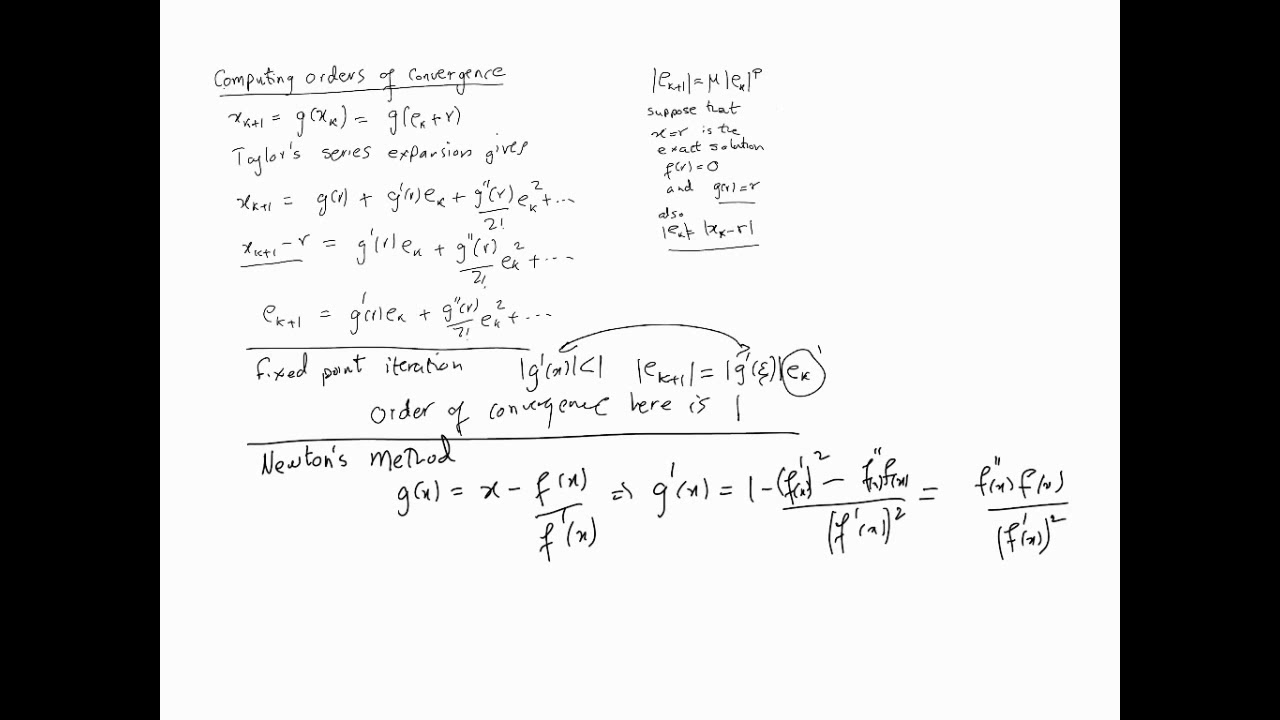 Computing orders of convergence
x_{k+1} = g(x_k) = g(e_k + r)
Taylor's series expansion gives
x_{k+1} = g(r) + g'(r)e_k + g''(r)/2! e_k^2 + ...
x_{k+1} - r = g'(r)e_k + g''(r)/2! e_k^2 + ...
e_{k+1} = g'(r)e_k + g''(r)/2! e_k^2 + ...
|e_{k+1}| = μ|e_k|^p
suppose that
x=r is the
exact solution
f(r)=0
and g(r)=r
also
|e_k| = |x_k-r|
fixed point iteration |g'(x)|<1 |e_{k+1}| = |g'(ξ)|e_k^1
order of convergence here is 1
Newton's method
g(x) = x - f(x)/f'(x) ⇒ g'(x) = 1 - ((f'(x))^2 - f''(x)f(x))/(f'(x))^2 = f''(x)f(x)/(f'(x))^2